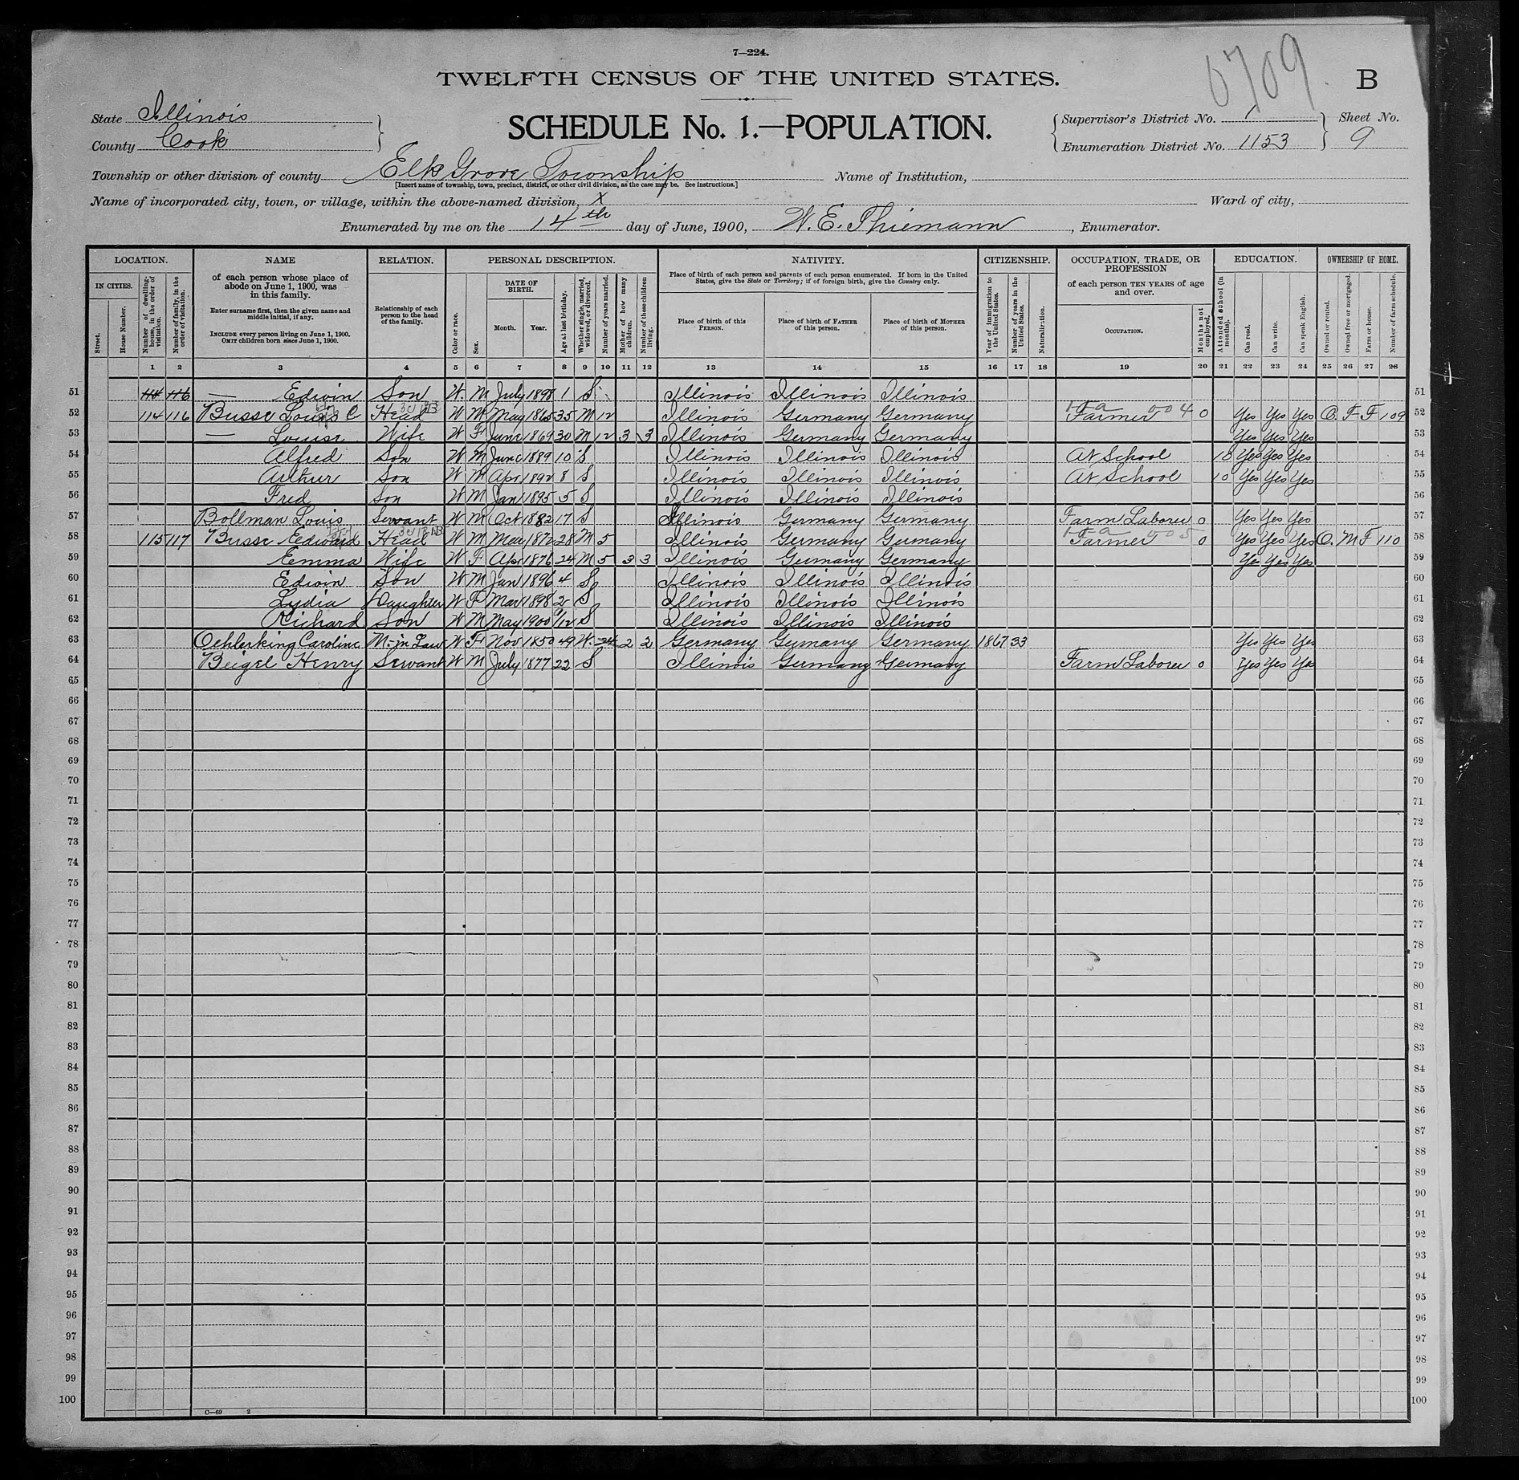 7—224.
TWELFTH CENSUS OF THE UNITED STATES.
B
State Illinois
County Cook
SCHEDULE No. 1.—POPULATION.
Supervisor's District No. 1
Enumeration District No. 1153
Sheet No.
9
Township or other division of county Elk Grove Township
[Insert name of township, town, precinct, district, or other civil division, as the case may be. See instructions.]
Name of Institution,
Name of incorporated city, town, or village, within the above-named division, x
Ward of city,
Enumerated by me on the 14th day of June, 1900, W. E. Thiemann, Enumerator.
LOCATION. NAME RELATION. PERSONAL DESCRIPTION. NATIVITY. CITIZENSHIP. OCCUPATION, TRADE, OR PROFESSION EDUCATION. OWNERSHIP OF HOME.
IN CITIES. Street. House Number. Number of dwelling-house, in the order of visitation. Number of family, in the order of visitation.
of each person whose place of abode on June 1, 1900, was in this family.
Enter surname first, then the given name and middle initial, if any.
INCLUDE every person living on June 1, 1900. OMIT children born since June 1, 1900.
Relationship of each person to the head of the family.
Color or race. Sex. DATE OF BIRTH. Month. Year. Age at last birthday. Whether single, married, widowed, or divorced. Number of years married. Mother of how many children. Number of these children living.
Place of birth of each person and parents of each person enumerated. If born in the United States, give the State or Territory; if of foreign birth, give the Country only.
Place of birth of this PERSON. Place of birth of FATHER of this person. Place of birth of MOTHER of this person.
Year of immigration to the United States. Number of years in the United States. Naturalization.
of each person TEN YEARS of age and over.
OCCUPATION. Months not employed.
Attended school (in months). Can read. Can write. Can speak English. Owned or rented. Owned free or mortgaged. Farm or house. Number of farm schedule.
1 2 3 4 5 6 7 8 9 10 11 12 13 14 15 16 17 18 19 20 21 22 23 24 25 26 27 28
51 114 116 — Edwin Son W M July 1898 1 S Illinois Illinois Illinois 51
52 114 116 Busse Louis C Head W M May 1865 35 M 12 Illinois Germany Germany Farmer 0 Yes Yes Yes O F F 109 52
53 — Louise Wife W F June 1869 30 M 12 3 3 Illinois Germany Germany Yes Yes Yes 53
54 Alfred Son W M June 1889 10 S Illinois Illinois Illinois At School 10 Yes Yes Yes 54
55 Arthur Son W M Apr 1892 8 S Illinois Illinois Illinois At School 10 Yes Yes Yes 55
56 Fred Son W M Jan 1895 5 S Illinois Illinois Illinois 56
57 Bollman Louis Servant W M Oct 1882 17 S Illinois Germany Germany Farm Laborer 0 Yes Yes Yes 57
58 115 117 Busse Edward Head W M May 1872 28 M 5 Illinois Germany Germany Farmer 0 Yes Yes Yes O M F 110 58
59 Emma Wife W F Apr 1876 24 M 5 3 3 Illinois Germany Germany Yes Yes Yes 59
60 Edwin Son W M Jan 1896 4 S Illinois Illinois Illinois 60
61 Lydia Daughter W F Mar 1898 2 S Illinois Illinois Illinois 61
62 Richard Son W M May 1900 /12 S Illinois Illinois Illinois 62
63 Oehlerking Caroline M.-in Law W F Nov 1850 49 W 2 2 Germany Germany Germany 1867 33 Yes Yes Yes 63
64 Beigel Henry Servant W M July 1877 22 S Illinois Germany Germany Farm Laborer 0 Yes Yes Yes 64
65 65
66 66
67 67
68 68
69 69
70 70
71 71
72 72
73 73
74 74
75 75
76 76
77 77
78 78
79 79
80 80
81 81
82 82
83 83
84 84
85 85
86 86
87 87
88 88
89 89
90 90
91 91
92 92
93 93
94 94
95 95
96 96
97 97
98 98
99 99
100 100